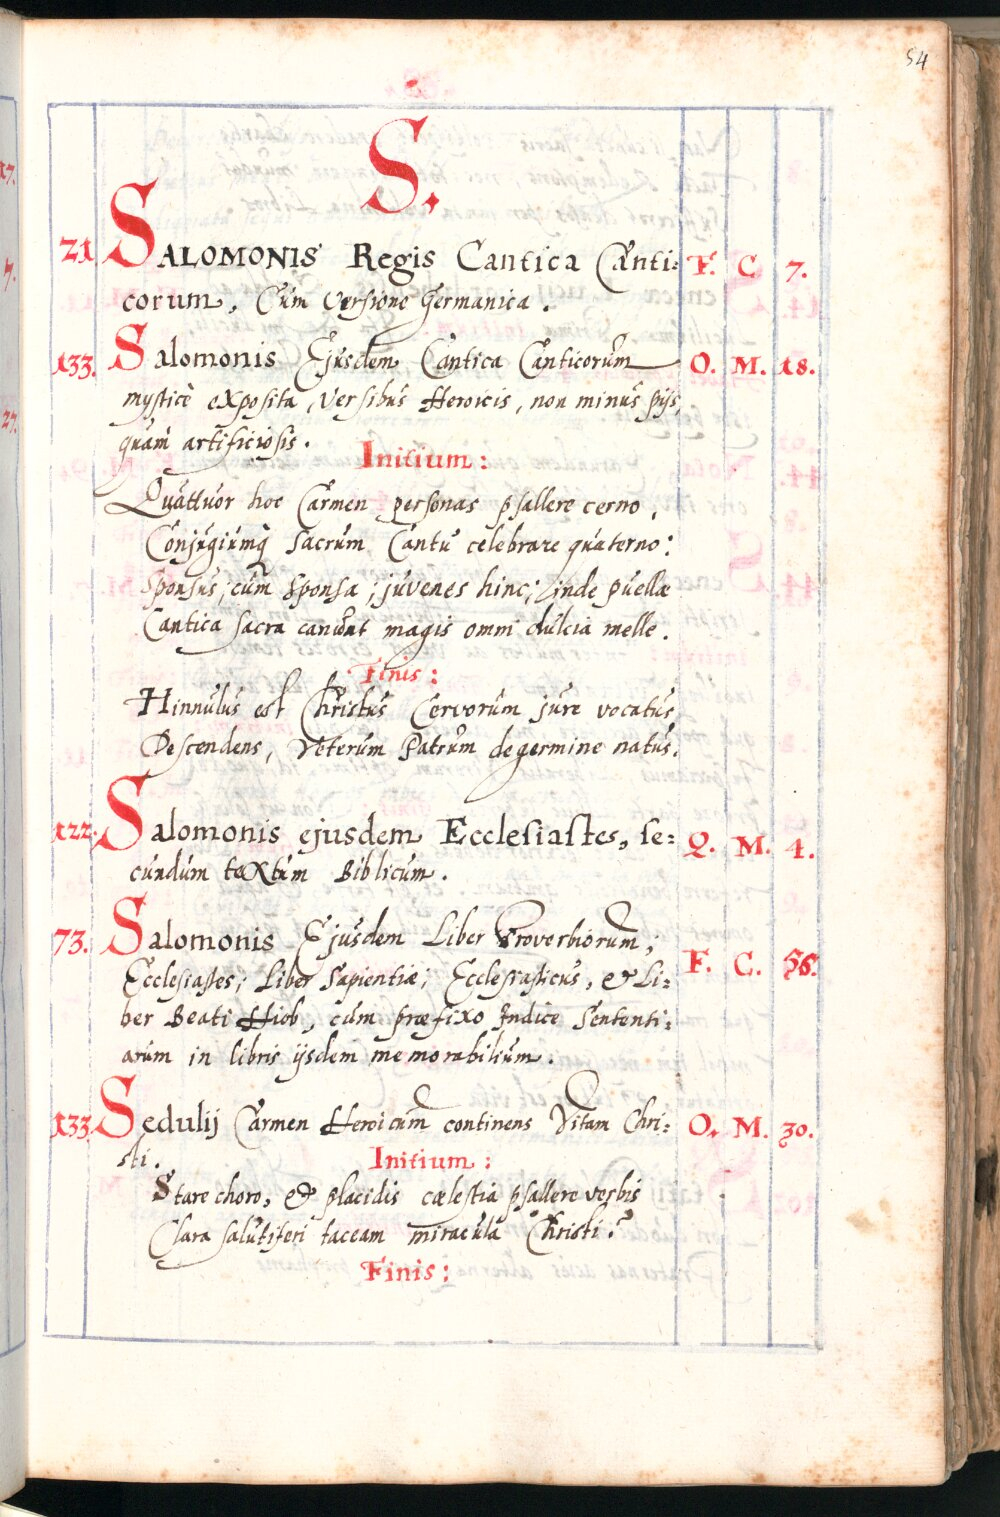 54
S.
21 SALOMONIS Regis Cantica Canti= F. C 7.
corum, Cum Versione Germanica.
133. Salomonis Ejusdem Cantica Canticorum O. M. 18.
mysticè exposita, Versibus Heroicis, non minus pijs,
quàm artificiosis.
Initium:
Quattuor hoc Carmen personas psallere cerno,
Conjugiumq̀ sacrum Cantu celebrare quaterno:
Sponsus, cum Sponsa; juvenes hinc; inde puellæ
Cantica sacra canunt magis omni dulcia melle.
Finis:
Hinnulus est Christus Cervorum jure vocatus
Descendens, Veterum Patrum de germine natus.
122. Salomonis ejusdem Ecclesiastes, se= Q. M. 4.
cundum textum Biblicum.
73. Salomonis Ejusdem Liber Proverbiorum,
Ecclesiastes; Liber Sapientiæ; Ecclesiasticus, & Li= F. C. 56.
ber Beati Hiob, cum præfixo Indice Sententi=
arum in libris ijsdem memorabilium.
133. Sedulij Carmen Heroicum continens Vitam Chri= O. M. 30.
sti.
Initium:
Stare choro, & placidis cælestia psallere verbis
Clara salutiferi taceam miracula Christi?
Finis:
17.
7.
27.